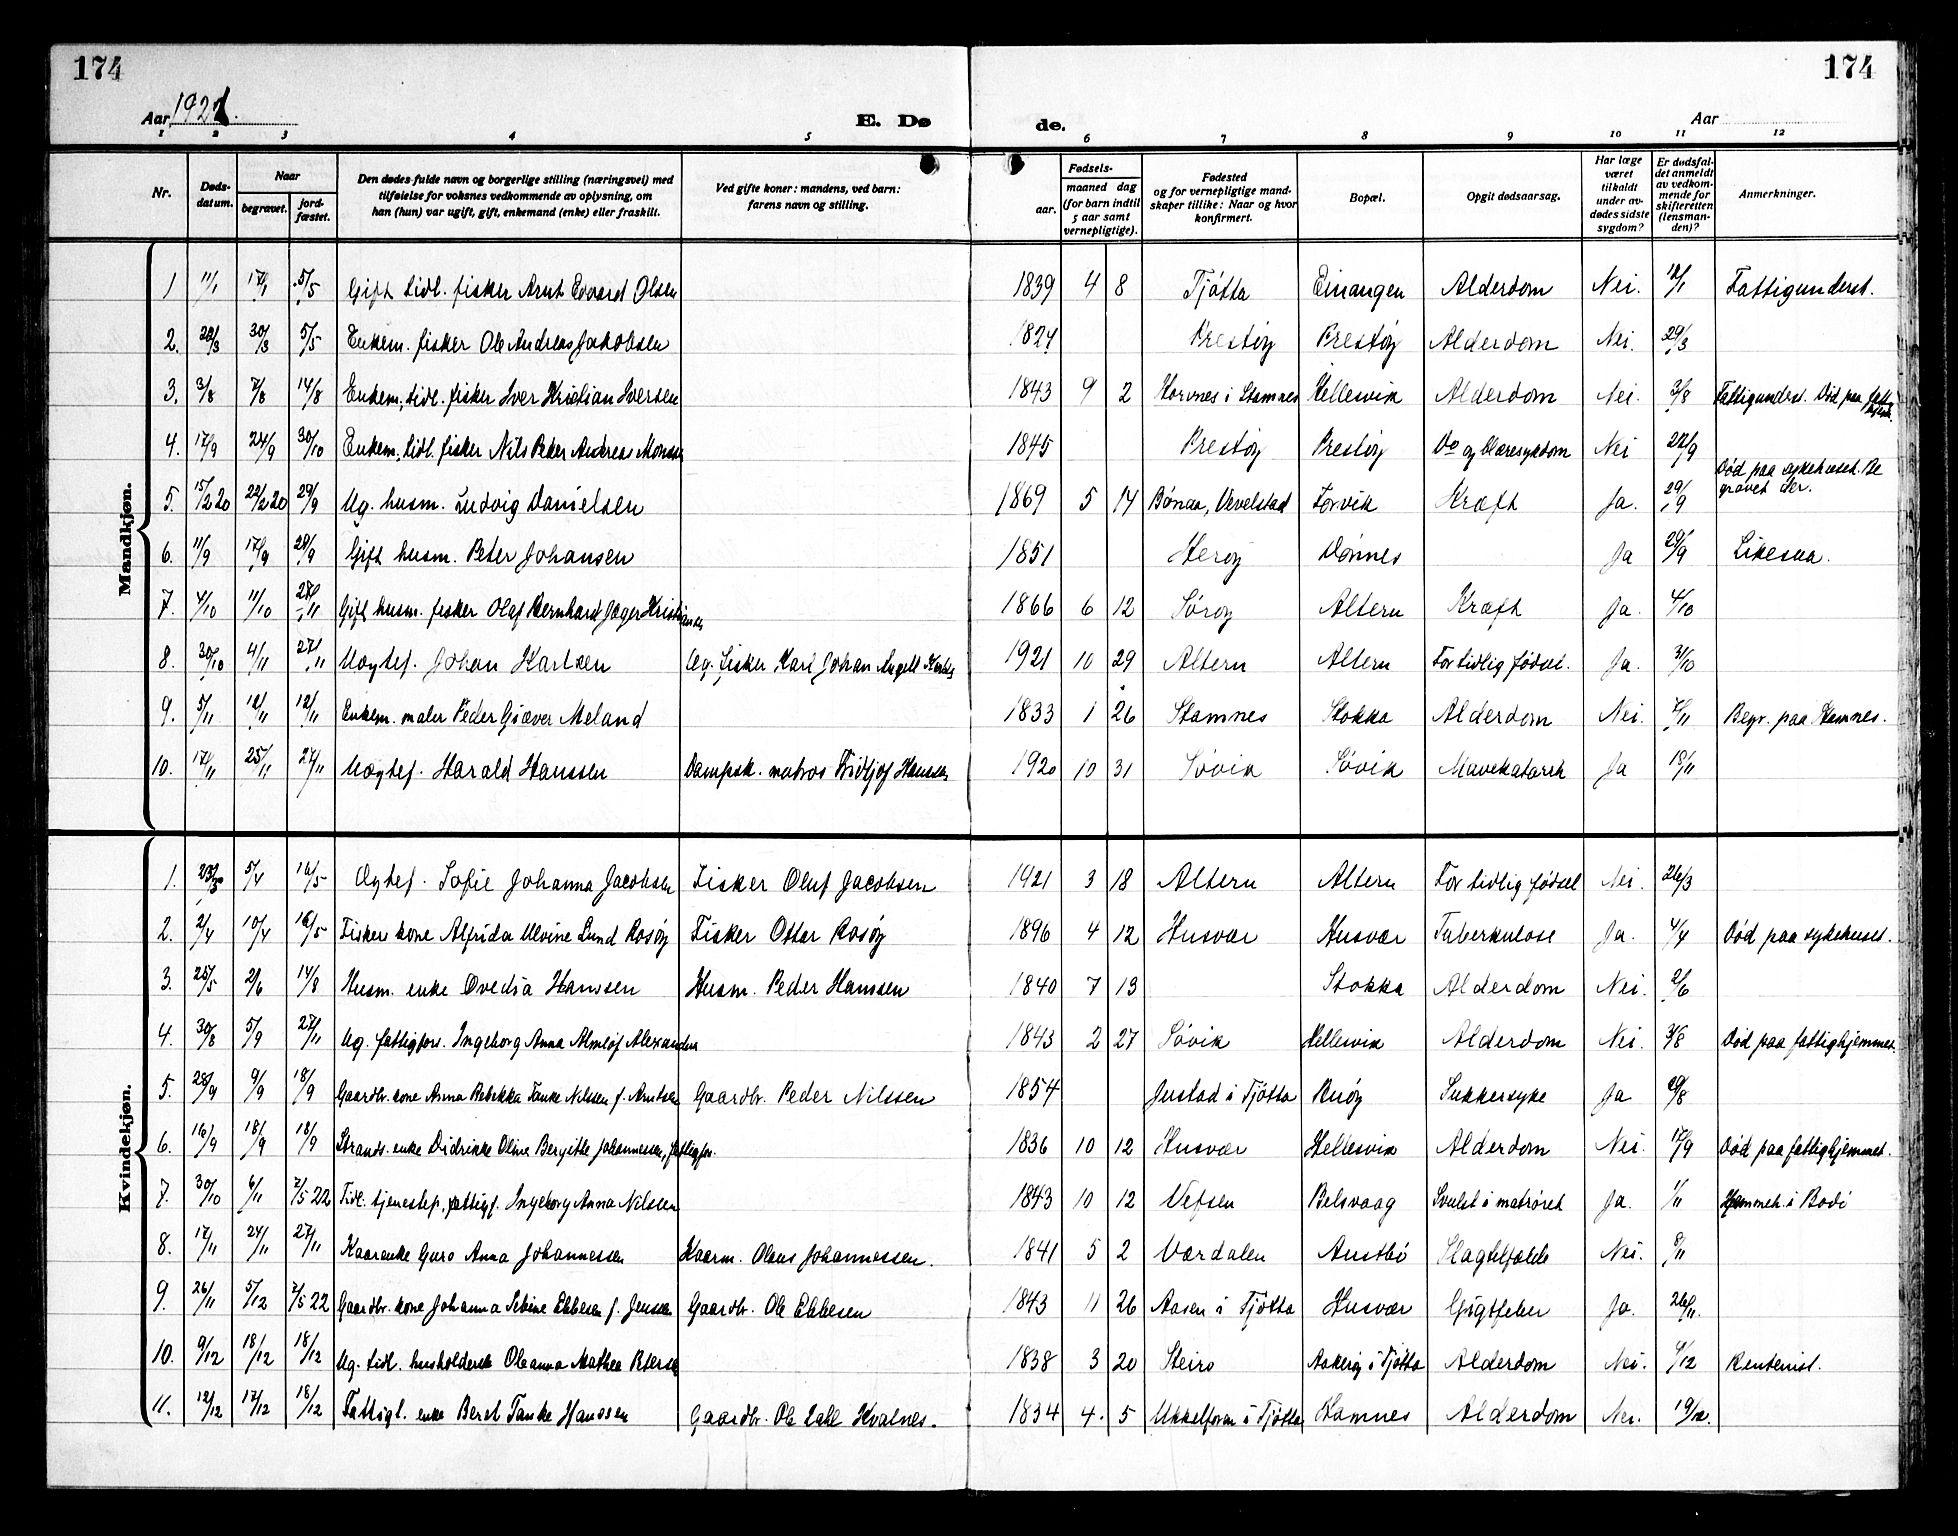 174
174
Aar 1921.
E. Dø
de.
Aar
1 2 3 4 5 6 7 8 9 10 11 12
Nr.
Døds-
datum.
Naar
begravet.
jord-
fæstet.
Den dødes fulde navn og borgerlige stilling (næringsvei) med
tilføielse for voksnes vedkommende av oplysning, om
han (hun) var ugift, gift, enkemand (enke) eller fraskilt.
Ved gifte koner: mandens, ved barn:
farens navn og stilling.
Fødsels-
aar.
maaned dag
(for barn indtil
5 aar samt
vernepligtige).
Fødested
og for vernepligtige mand-
skaper tillike: Naar og hvor
konfirmert.
Bopæl.
Opgit dødsaarsag.
Har læge
været
tilkaldt
under av-
dødes sidste
sygdom?
Er dødsfal-
det anmeldt
av vedkom-
mende for
skifteretten
(lensman-
den)?
Anmerkninger.
Mandkjøn.
1 11/1 17/1 5/5 Gift tidl. fisker Arnt Edvard Olsen 1839 4 8 Tjøtta Einangen Alderdom Nei. 12/1 Fattigunderst.
2. 28/3 30/3 5/5 Enkem. fisker Ole Andreas Jakobsen 1824 Prestøy Prestøy Alderdom Nei. 29/3
3. 3/8 7/8 14/8 Enkem, tidl. fisker Iver Kristian Iversen 1843 9 2 Horvnes i Stamnes Hellesvik Alderdom Nei. 3/8 Fattigunderst. Død paa
4. 17/9 24/9 30/10 Enkem, tidl. fisker Nils Peter Andreas Monsen 1845 Prestøy Prestøy Do og blæresykdom Nei 22/9
5. 15/2 20 22/2 20 29/9 Ug. husm. Ludvig Danielsen 1869 5 14 Bønaa, Vevelstad Forvik Kræft Ja. 29/9 Død paa sykehuset. Be
gravet der.
6. 11/9 17/9 28/9 Gift husm. Peter Johansen 1851 Herøy Dønnes Ja 29/9 Likesaa.
7. 4/10 11/10 27/11 Gift husm. fisker Olaf Bernhard Jager Kristiansen 1866 6 12 Sørøy Altern Kræft Ja. 4/10
8. 30/10 4/11 27/11 Uegtef. Johan Karlsen Ug. fisker Karl Johan Angell 1921 10 29 Altern Altern For tidlig fødsel. Ja. 31/10
9. 5/11 12/11 12/11 Enkem. maler Peder Giæver Meland 1833 1 26 Stamnes Stokka Alderdom Nei. 7/11 Begr. paa Stamnes.
10. 17/11 25/11 27/11 Uegtef. Harald Hanssen Dampsk. matros Fridtjof Hanssen 1920 10 31 Søvik Søvik Mavekatarrh Ja 18/11
Kvindekjøn.
1. 23/3 5/4 16/5 Egtef. Sofie Johanna Jacobsen Fisker Oluf Jacobsen 1921 3 18 Altern Altern For tidlig fødsel Nei. 26/3
2. 2/4 10/4 16/5 Fisker kone Alfrida Ulvine Lund Rosøy Fisker Ottar Rosøy 1896 4 12 Husvær Husvær Tuberkulose Ja. 4/4 Død paa sykehuset.
3. 25/5 2/6 14/8 Husm. enke Ovedia Hanssen Husm. Peder Hanssen 1840 7 13 Stokka Alderdom Nei. 2/6
4. 30/8 5/9 27/11 Ug. fattigfors. Ingeborg Anna Almlöf Alexandersen 1843 2 27 Søvik Hellesvik Alderdom Nei. 31/8 Død paa fattighjemmet.
5. 28/9 9/9 18/9 Gaardbr. kone Anna Rebekka Tanke Nilssen f. Arntsen Gaardbr. Peder Nilssen 1854 Justad i Tjøtta Buøy Sukkersyke Ja 29/8
6. 16/9 18/9 18/9 Strands. enke Didrikke Oline Bergitte Johannessen, fattigfor. 1836 10 12 Husvær Hellesvik Alderdom Nei. 17/9 Død paa fattighjemmet.
7. 30/10 6/11 7/5 22 Tidl. tjenestep, fattigf. Ingeborg Anna Nilssen 1843 10 12 Vefsen Belsvaag Svulst i matrøret Ja. 1/11 Hjemmeh. i Bodi
8. 17/11 24/11 27/11 Kaarenke Guro Anna Johannessen Kaarm. Olaus Johannessen. 1841 5 2 Værdalen Austbø Slagtilfælde Nei. 8/11
9. 26/11 5/12 7/5 22 Gaardbr. kone Johanna Sebine Ebbesen f. Jenssen Gaardbr. Ole Ebbesen 1843 11 26 Aasen i Tjøtta Husvær Gigtfeber Ja. 26/11.
10. 9/12 18/12 18/12 Ug. tidl. husholderske Oleanna Mathea Petersen 1838 3 20 Steiro Aakerøy i Tjøtta Alderdom Nei. 9/12 Rentenist.
11. 12/12 17/12 18/12 Fattigl. enke Beret Tanke Hanssen Gaardbr. Ole Kvalnes. 1834 4. 5 i Tjøtta Kamnes Alderdom Nei. 19/12.